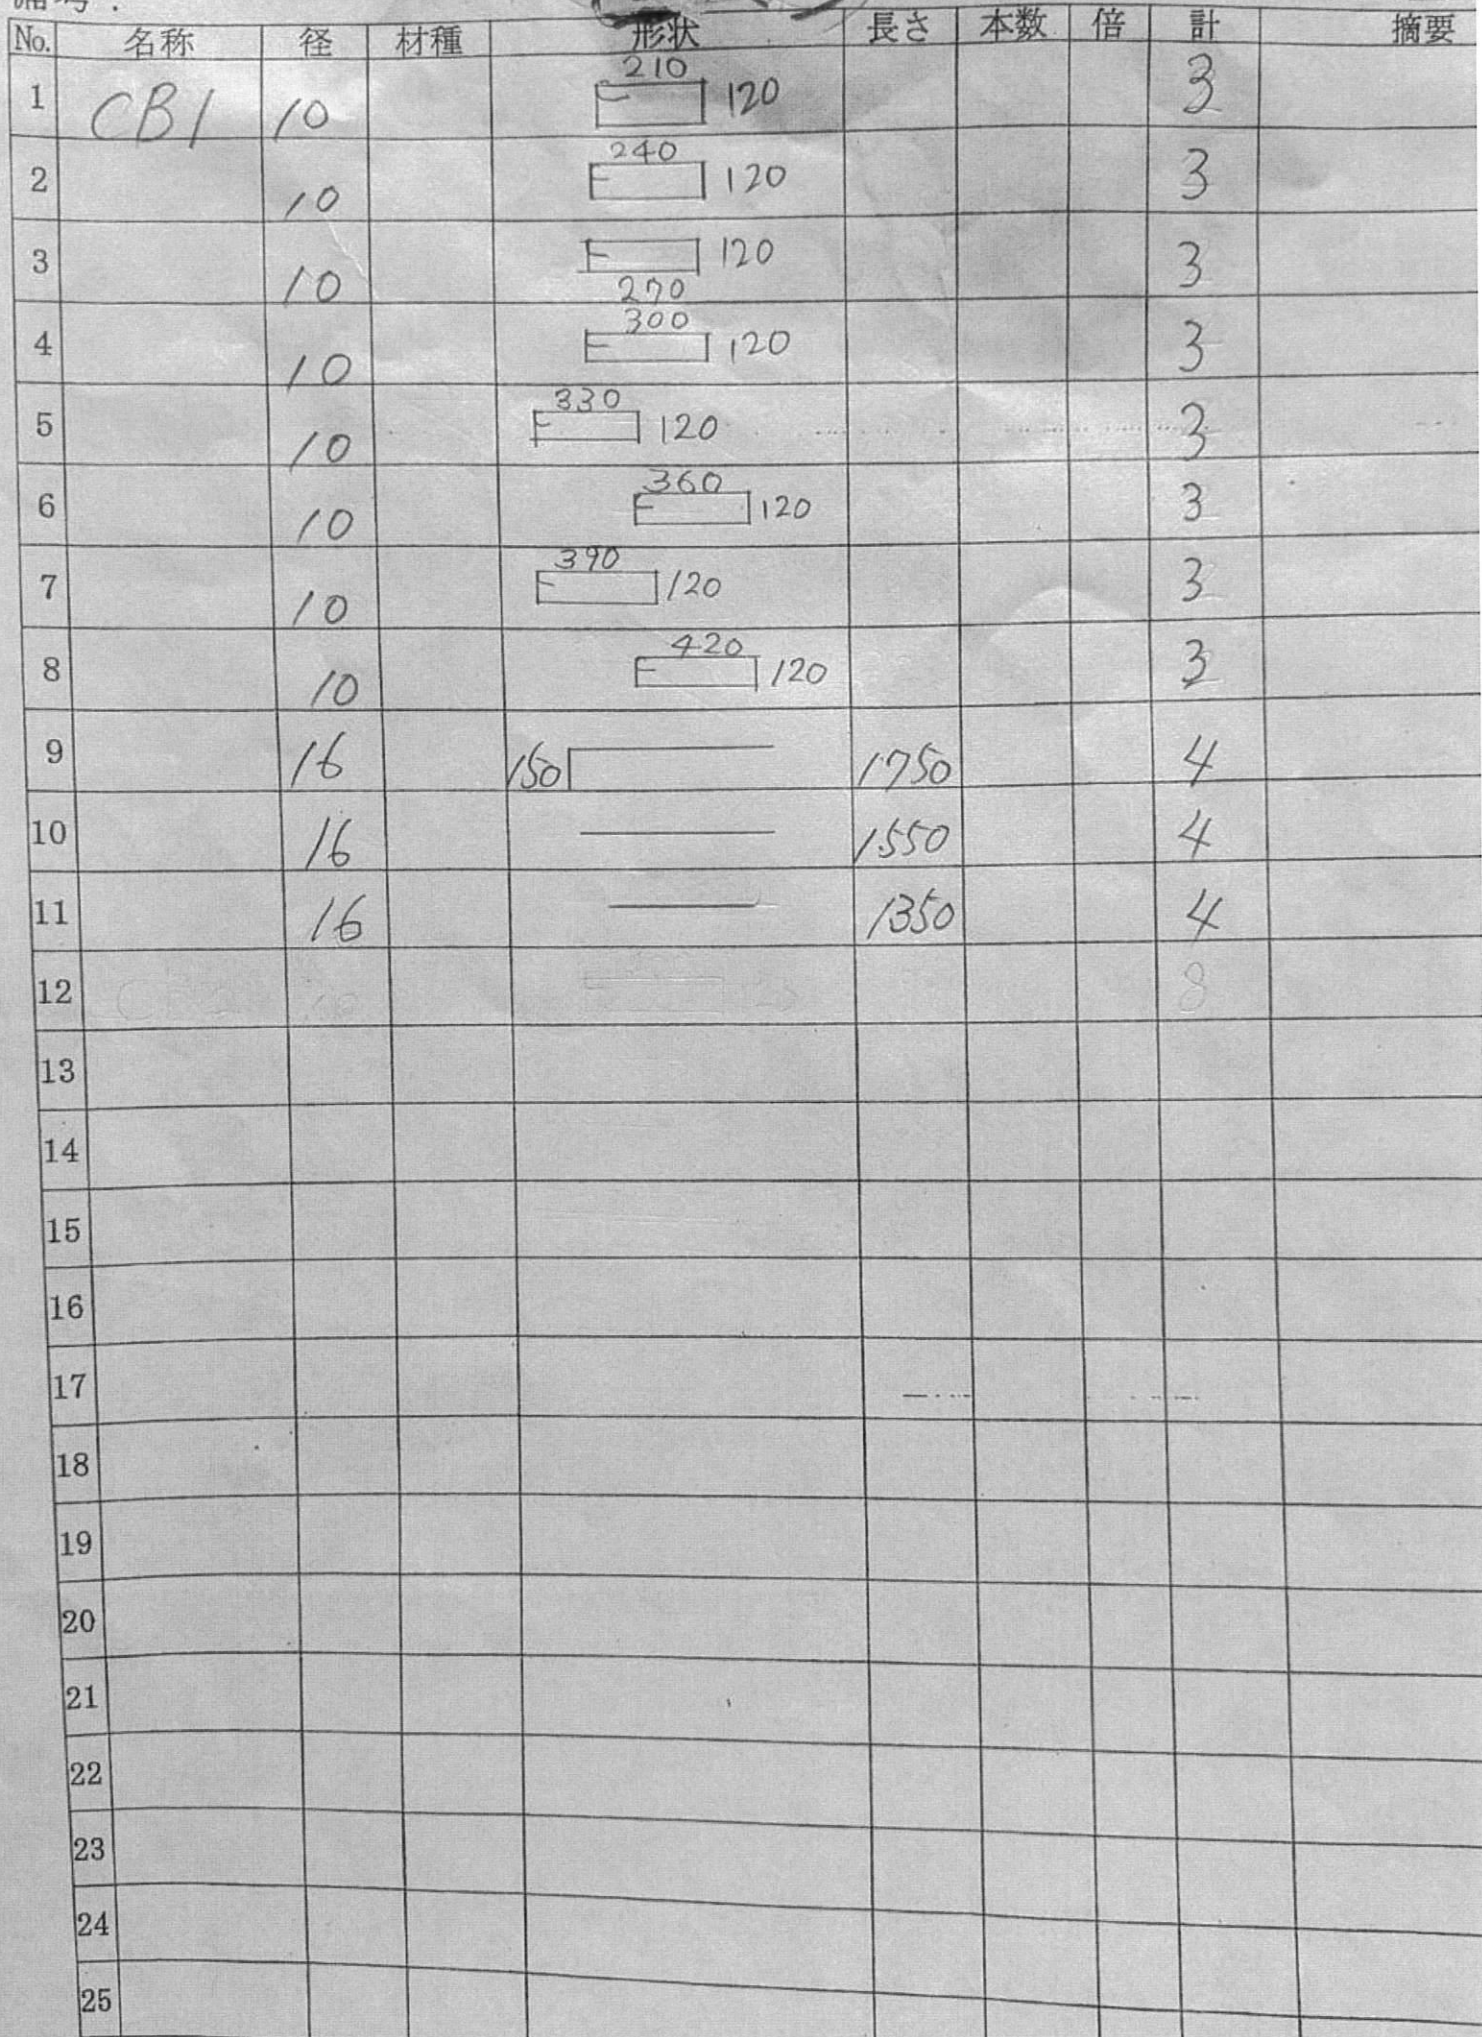 備考:
No. 名称 径 材種 形状 長さ 本数 倍 計 摘要
1 CB1 10 210 120 3
2 10 240 120 3
3 10 120 270 3
4 10 300 120 3
5 10 330 120 3
6 10 360 120 3
7 10 390 120 3
8 10 420 120 3
9 16 150 1750 4
10 16 1550 4
11 16 1350 4
12 8
13
14
15
16
17
18
19
20
21
22
23
24
25